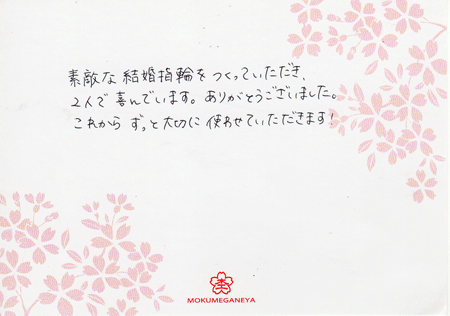 素敵な結婚指輪をつくっていただき、
2人で喜んでいます。ありがとうございました。
これからずっと大切に使わせていただきます!
MOKUMEGANEYA